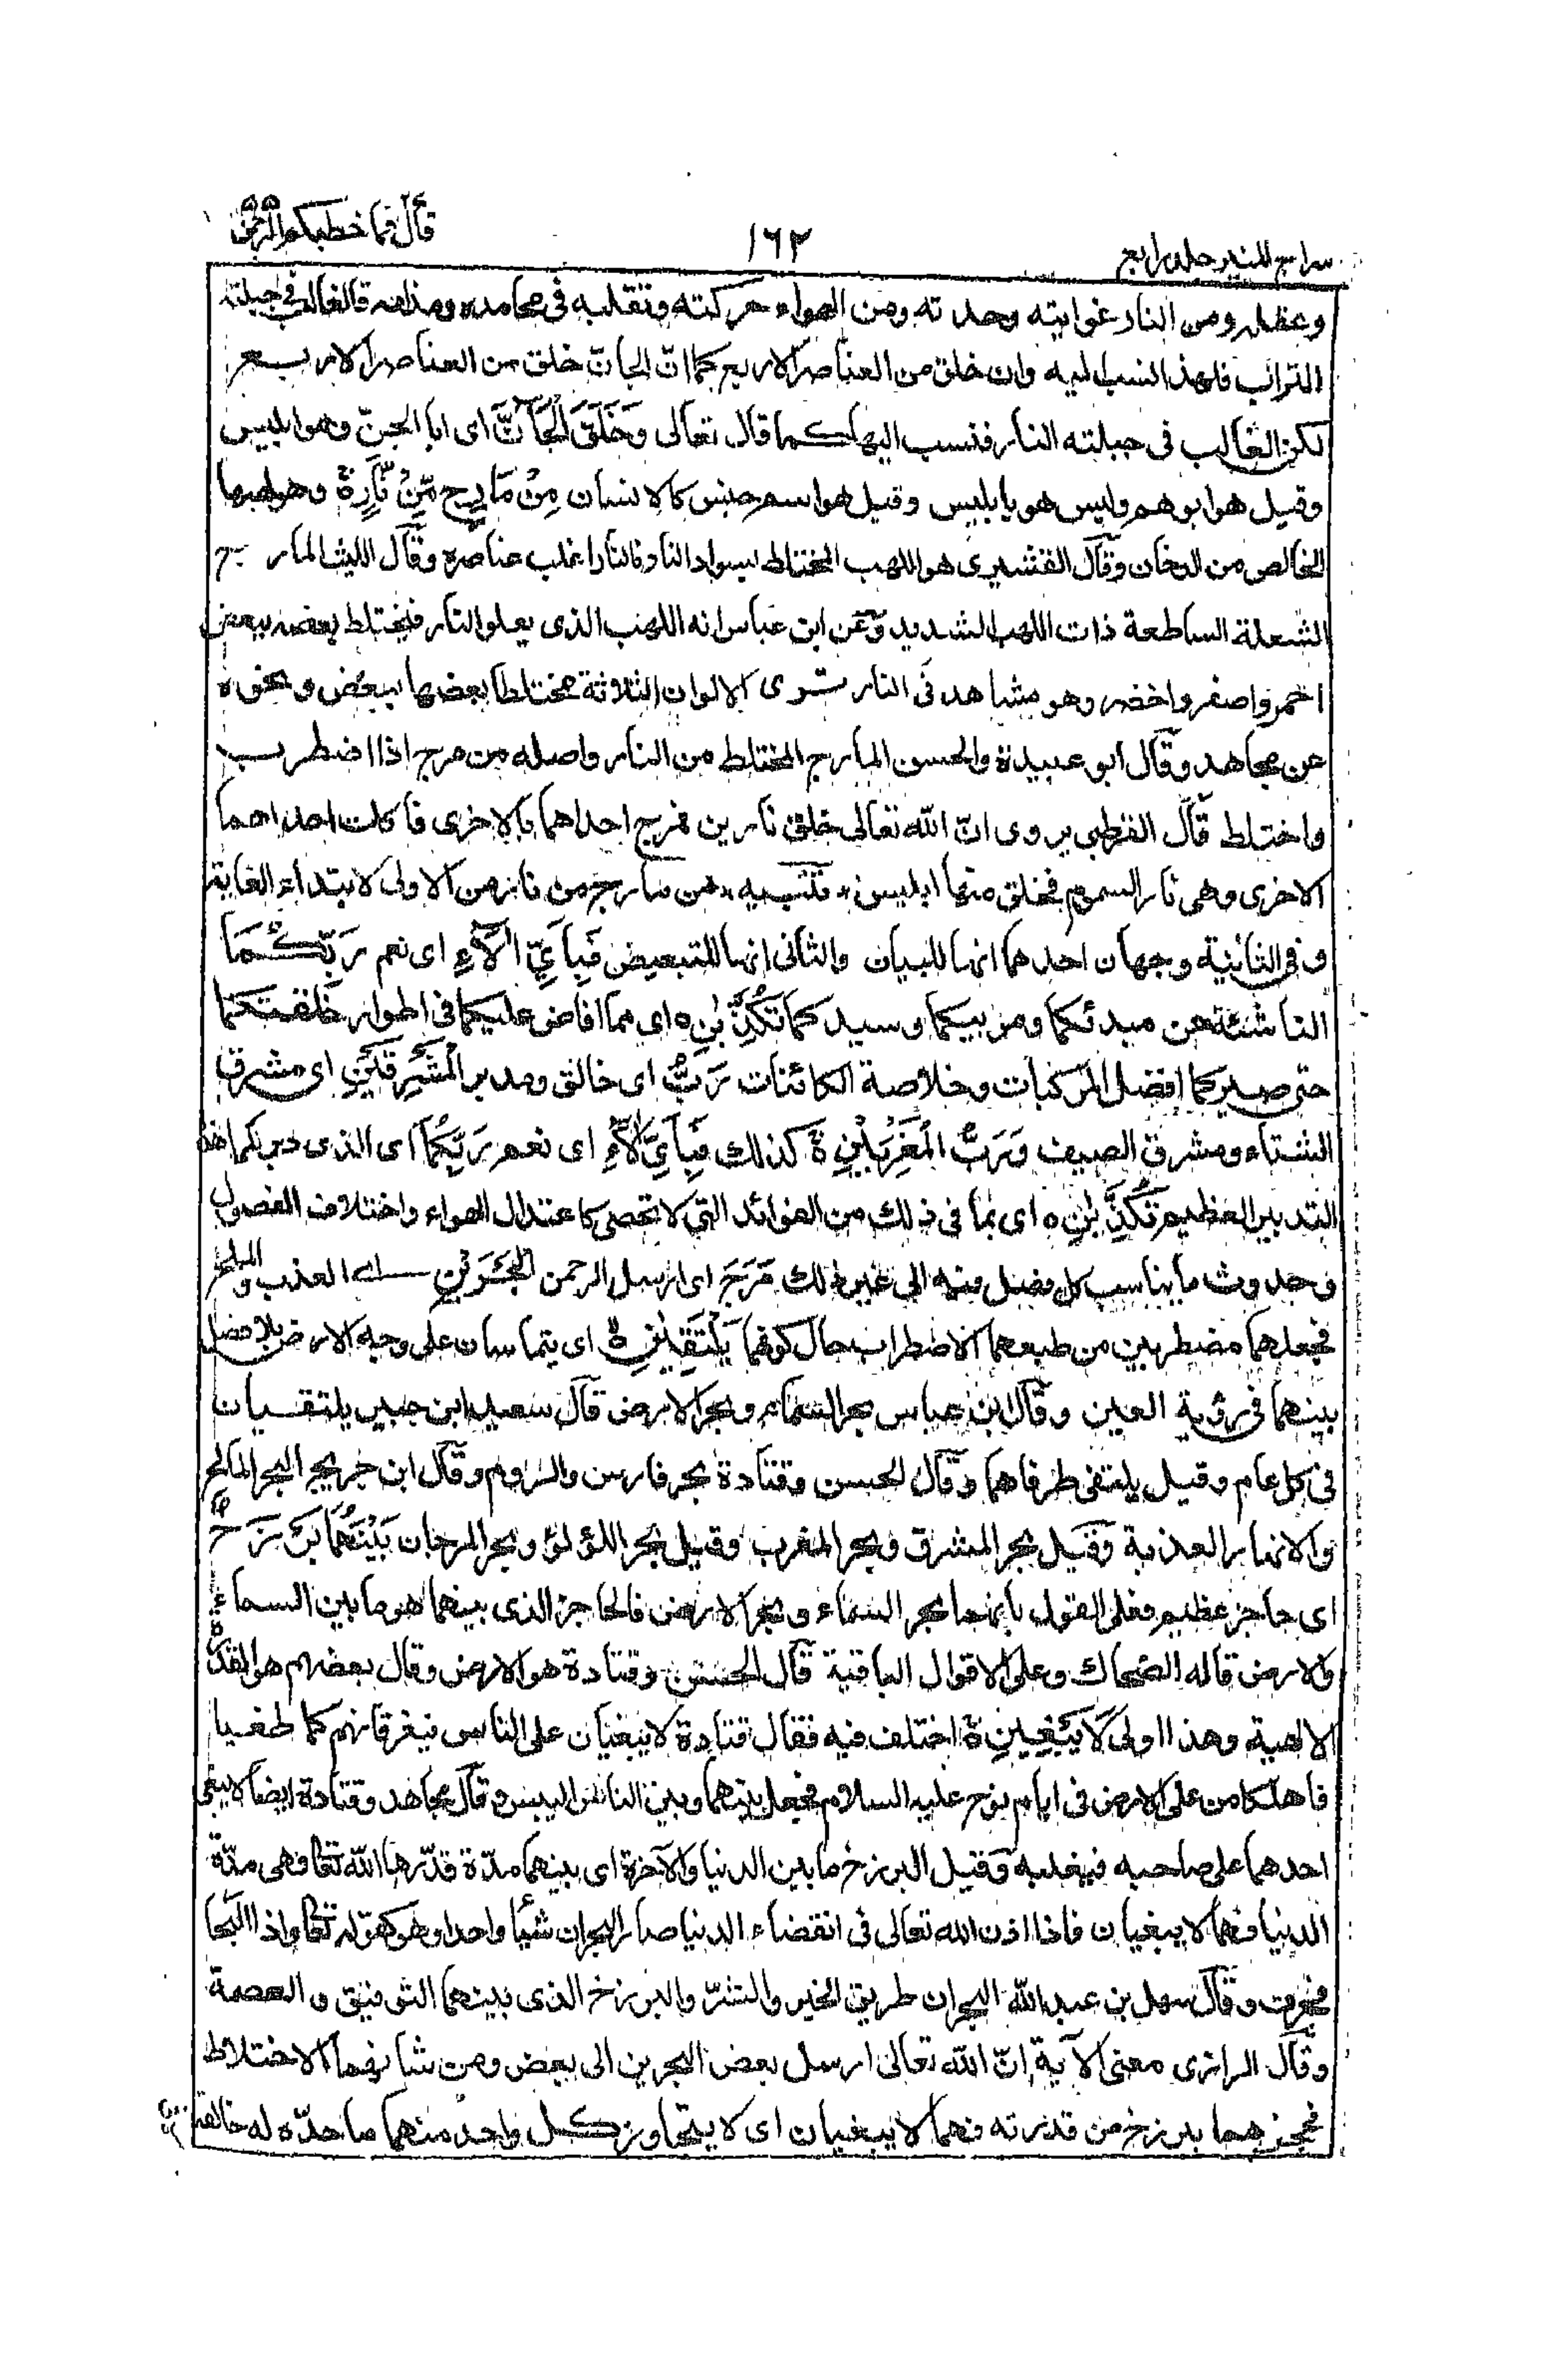 سراج المنير جلد رابع
١٦٢
قال فما خطبكم الرحمن
وعظله ومن النار غوايته وحدته ومن الهواء حركته وتقلبه فى محامده ومذامه فالغالب فى جبلته
التراب فلهذا نسب اليه وان خلق من العناصر الاربع كما انّ الجانّ خلق من العناصر الاربع
لكن الغالب فى جبلته النار فنسب اليها كما قال تعالى وَخَلَقَ الْجَآنَّ اى ابا الجنّ وهو ابليس
وقيل هو ابوهم وليس هو بابليس وقيل هو اسم جنس كالانسان مِنْ مَّارِجٍ مِّنْ نَّارٍ ۚ وهو لهبها
الخالص من الدخان وقال القشيرى هو اللهب المختلط بسواد النار فالنار اغلب عناصره وقال الليث المارج
الشعلة الساطعة ذات اللهب الشديد وعن ابن عباس انه اللهب الذى يعلو النار فيختلط بعضه ببعض
احمر واصفر واخضر وهو مشاهد فى النار ترى الالوان الثلاثة مختلطا بعضها ببعض ونحوه
عن مجاهد وقال ابو عبيدة والحسن المارج المختلط من النار واصله من مرج اذا اضطرب
واختلط قال القرطبى يروى انّ الله تعالى خلق نارين فمرج احداهما بالاخرى فاكلت احداهما
الاخرى وهى نار السموم فخلق منها ابليس * تنبيه * من مارج من نار من الاولى لابتداء الغاية
وفى الثانية وجهان احدهما انها للبيان والثانى انها للتبعيض فَبِاَىِّ اٰلَآءِ اى نعم رَبِّكُمَا
الناشئة عن مبدئكما ومربيكما وسيدكما تُكَذِّبٰنِ ه اى مما افاض عليكما فى اطوار خلقتكما
حتى صيركما افضل المركبات وخلاصة الكائنات رَبُّ اى خالق ومدبر الْمَشْرِقَيْنِ اى مشرق
الشتاء ومشرق الصيف وَرَبُّ الْمَغْرِبَيْنِ ۚ كذلك فَبِاَىِّ اٰلَآءِ اى نعم رَبِّكُمَا اى الذى دبر لكما هذا
التدبير العظيم تُكَذِّبٰنِ ه اى بما فى ذلك من الفوائد التى لا تحصى كاعتدال الهواء واختلاف الفصول
وحدوث ما يناسب كل فصل فيه الى غير ذلك مَرَجَ اى ارسل الرحمن الْبَحْرَيْنِ اى العذب والملح
فجعلهما مضطربين من طبعهما الاضطراب حال كونهما يَلْتَقِيٰنِ ۙ اى يتماسان على وجه الارض بلا فصل
بينهما فى رؤية العين وقال ابن عباس بحر السماء وبحر الارض قال سعيد ابن جبير يلتقيان
فى كل عام وقيل يلتقى طرفاهما وقال الحسن وقتادة بحر فارس والروم وقال ابن جريج البحر المالح
والانهار العذبة وقيل بحر المشرق وبحر المغرب وقيل بحر اللؤلؤ وبحر المرجان بَيْنَهُمَا بَرْزَخٌ
اى حاجز عظيم فعلى القول بانهما بحر السماء وبحر الارض فالحاجز الذى بينهما هو ما بين السماء
والارض قاله الضحاك وعلى الاقوال الباقية قال الحسن وقتادة هو الارض وقال بعضهم هو القدرة
الالهية وهذا اولى لَا يَبْغِيٰنِ ۚ اختلف فيه فقال قتادة لا يبغيان على الناس فيغرقانهم كما طغيا
فاهلكا من على الارض فى ايام نوح عليه السلام فجعل بينهما وبين الناس اليبس وقال مجاهد وقتادة ايضا لا يبغى
احدهما على صاحبه فيغلبه وقيل البرزخ ما بين الدنيا والآخرة اى بينهما مدّة قدّرها الله تعالى وهى مدّة
الدنيا فهما لا يبغيان فاذا اذن الله تعالى فى انقضاء الدنيا صار البحران شيأ واحدا وهو كقوله تعالى واذا البحار
فجرت وقال سهل بن عبد الله البحران طريق الخير والشرّ والبرزخ الذى بينهما التوفيق والعصمة
وقال الرازى معنى الآية انّ الله تعالى ارسل بعض البحرين الى بعض ومن شأنهما الاختلاط
فحجزهما ببرزخ من قدرته فهما لا يبغيان اى لا يتجاوز كل واحد منهما ما حدّه له خالقه